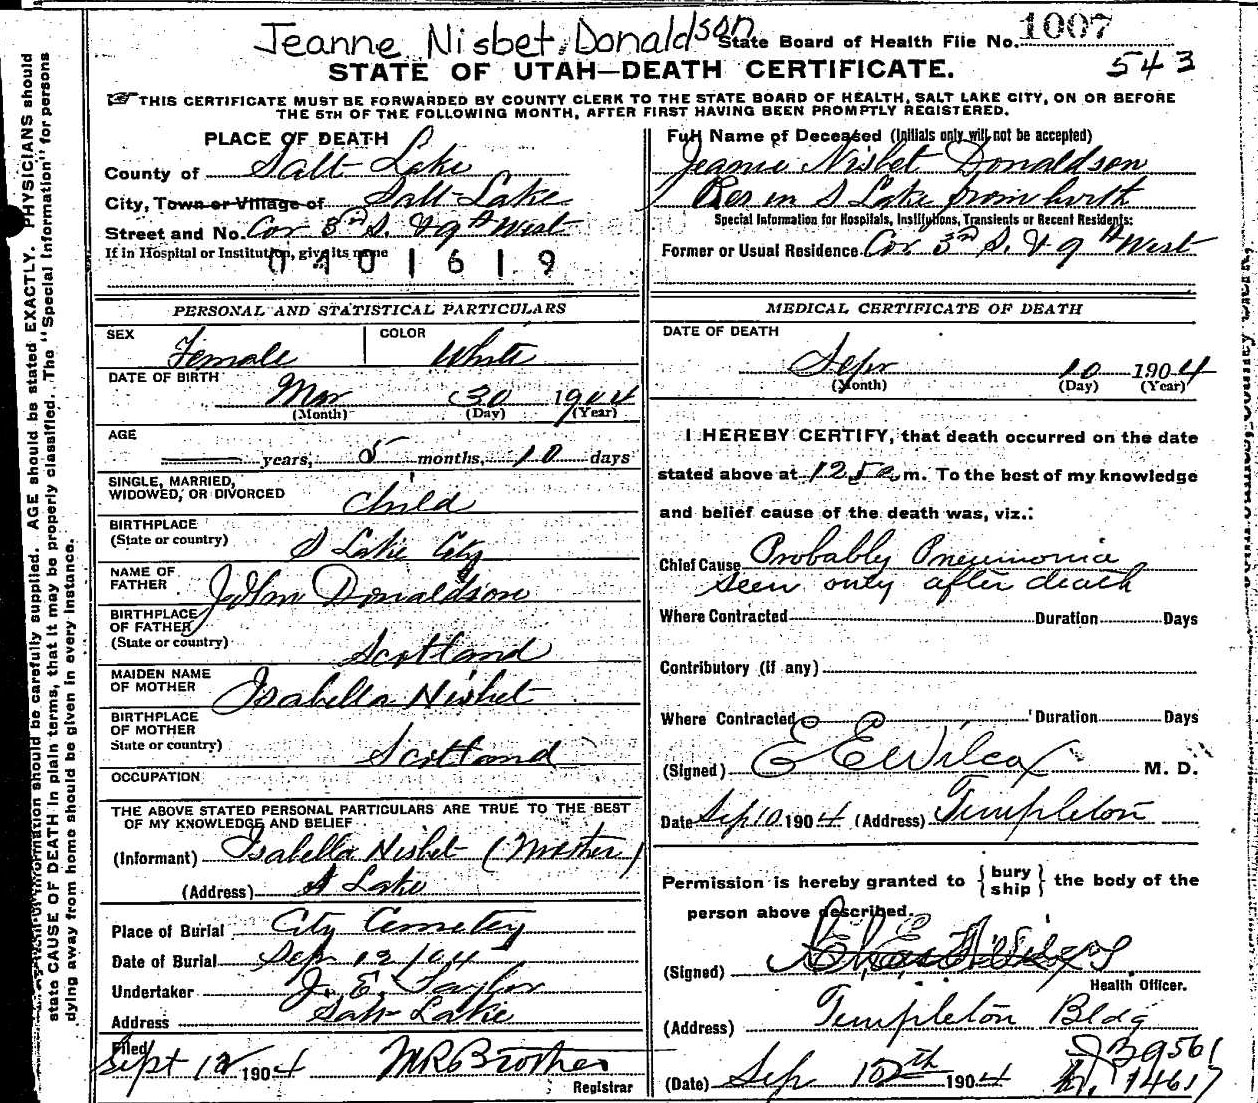 Jeanne Nisbet Donaldson
State Board of Health File No. 1007
543
STATE OF UTAH—DEATH CERTIFICATE.
THIS CERTIFICATE MUST BE FORWARDED BY COUNTY CLERK TO THE STATE BOARD OF HEALTH, SALT LAKE CITY, ON OR BEFORE
THE 5TH OF THE FOLLOWING MONTH, AFTER FIRST HAVING BEEN PROMPTLY REGISTERED.
PLACE OF DEATH
County of Salt Lake
City, Town or Village of Salt Lake
Street and No. Cor 3rd S. & 9th West
If in Hospital or Institution, give its name
0401619
PERSONAL AND STATISTICAL PARTICULARS
SEX Female COLOR White
DATE OF BIRTH
Mar 30 1904
(Month) (Day) (Year)
AGE
years, 5 months, 10 days
SINGLE, MARRIED,
WIDOWED, OR DIVORCED Child
BIRTHPLACE
(State or country) S Lake City
NAME OF
FATHER John Donaldson
BIRTHPLACE
OF FATHER
(State or country) Scotland
MAIDEN NAME
OF MOTHER Isabella Nisbet
BIRTHPLACE
OF MOTHER
State or country) Scotland
OCCUPATION
THE ABOVE STATED PERSONAL PARTICULARS ARE TRUE TO THE BEST
OF MY KNOWLEDGE AND BELIEF
(Informant) Isabella Nisbet (Mother)
(Address) S Lake
Place of Burial City Cemetery
Date of Burial Sep 12/04
Undertaker J. E. Taylor
Address Salt Lake
Filed
Sept 12 1904
Registrar
Full Name of Deceased (Initials only will not be accepted)
Jeanie Nisbet Donaldson
Res in S Lake from birth
Special Information for Hospitals, Institutions, Transients or Recent Residents:
Former or Usual Residence Cor 3rd S. & 9th West
MEDICAL CERTIFICATE OF DEATH
DATE OF DEATH
Sepr 10 1904
(Month) (Day) (Year)
I HEREBY CERTIFY, that death occurred on the date
stated above at m. To the best of my knowledge
and belief cause of the death was, viz.:
Chief Cause Probably Pneumonia
seen only after death
Where Contracted Duration Days
Contributory (if any)
Where Contracted Duration Days
(Signed) E E Wilcox M. D.
Date Sep 10 1904 (Address) Templeton
Permission is hereby granted to {bury
ship} the body of the
person above described.
(Signed)
Health Officer.
(Address) Templeton Bldg
(Date) Sep 1904
PHYSICIANS should
state CAUSE OF DEATH in plain terms, that it may be properly classified. The "Special Information" for persons
dying away from home should be given in every instance.
information should be carefully supplied. AGE should be stated EXACTLY.